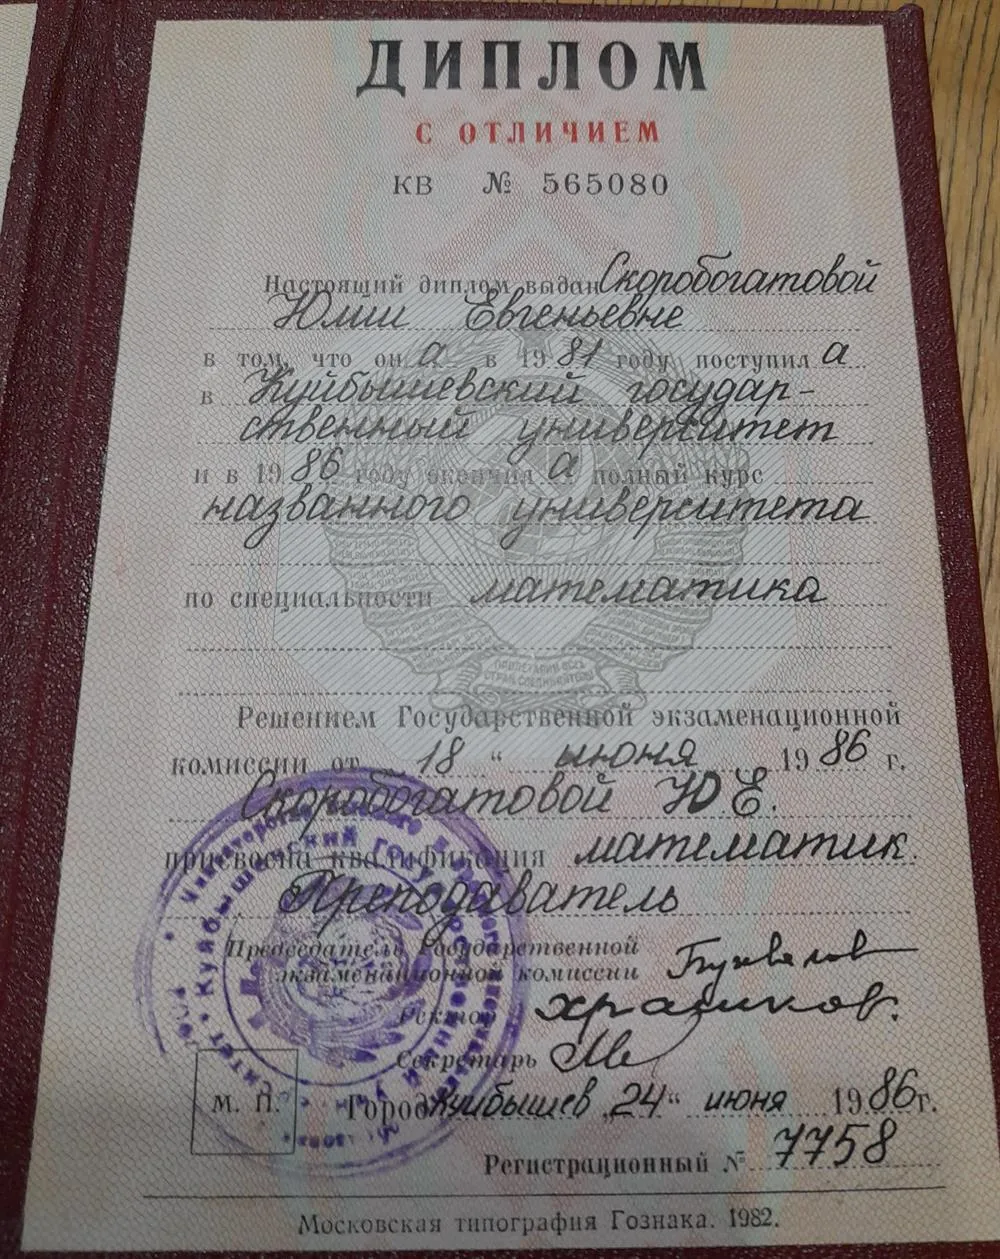 ДИПЛОМ
С ОТЛИЧИЕМ
КВ № 565080
Настоящий диплом выдан Скоробогатовой
Юлии Евгеньевне
в том, что он а в 1981 году поступил а
в Куйбышевский государ-
ственный университет
и в 1986 году окончил а полный курс
названного университета
по специальности математика
Решением Государственной экзаменационной
комиссии от 18 " июня 1986 г.
Скоробогатовой Ю Е.
присвоена квалификация математик.
Преподаватель
Председатель Государственной
экзаменационной комиссии
Ректор Храмков.
Секретарь
М. П. Город Куйбышев „24" июня 1986 г.
Регистрационный № 7758
Московская типография Гознака. 1982.